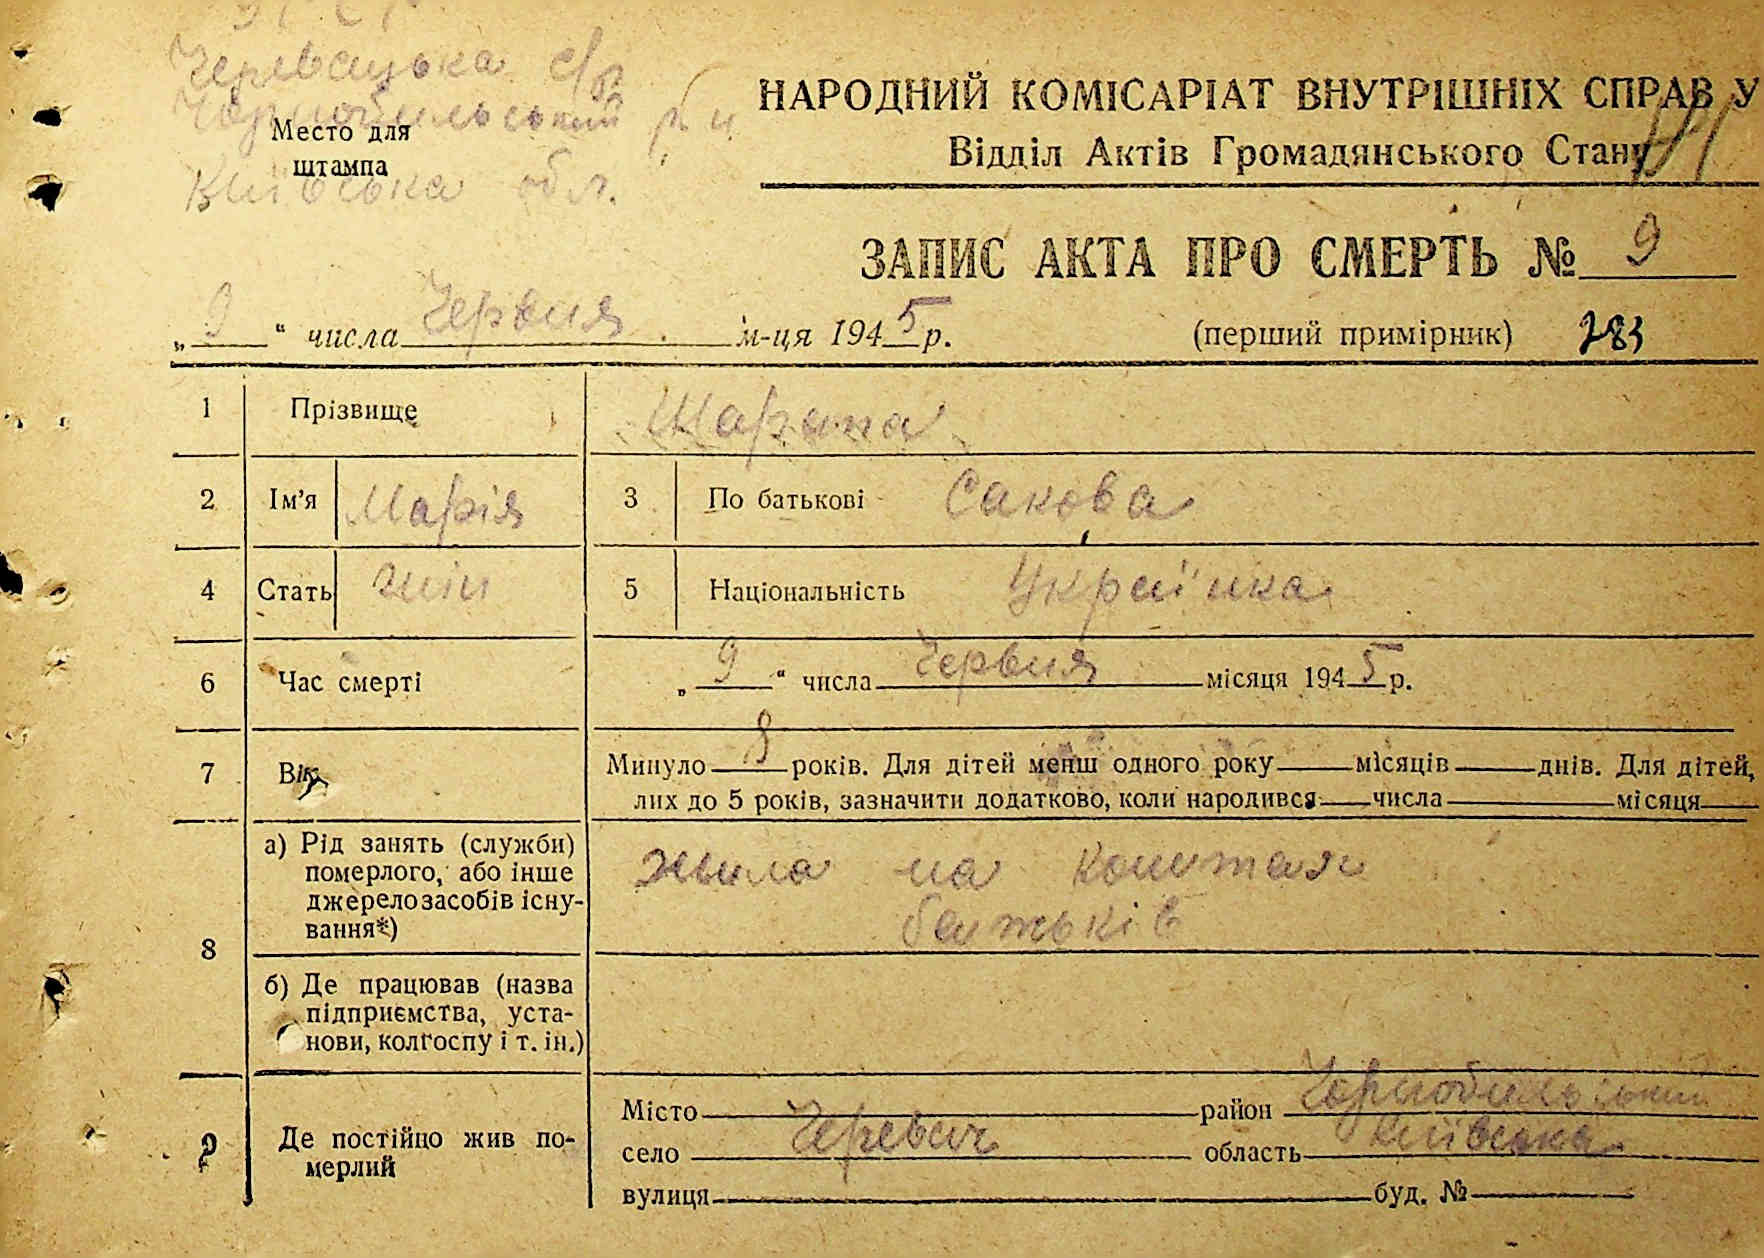 Черевацька с/р
Чорнобильський р-н
Место для
штампа
Київська обл.
НАРОДНИЙ КОМІСАРІАТ ВНУТРІШНІХ СПРАВ У
Відділ Актів Громадянського Стану
ЗАПИС АКТА ПРО СМЕРТЬ № 9
„ 9 “ числа Червня м-ця 1945 р.
(перший примірник) 283
1 Прізвище Шарапа
2 Ім’я Марія 3 По батькові Сакова
4 Стать жін 5 Національність Українка
6 Час смерті „ 9 “ числа Червня місяця 1945 р.
7 Вік Минуло 8 років. Для дітей менш одного року місяців днів. Для дітей,
лих до 5 років, зазначити додатково, коли народився числа місяця
8 а) Рід занять (служби)
померлого, або інше
джерело засобів існу-
вання*)
жила на коштах
батьків
б) Де працював (назва
підприємства, уста-
нови, колгоспу і т. ін.)
9 Де постійно жив по-
мерлий
Місто район Чорнобильський
село Черевач область Київська
вулиця буд. №